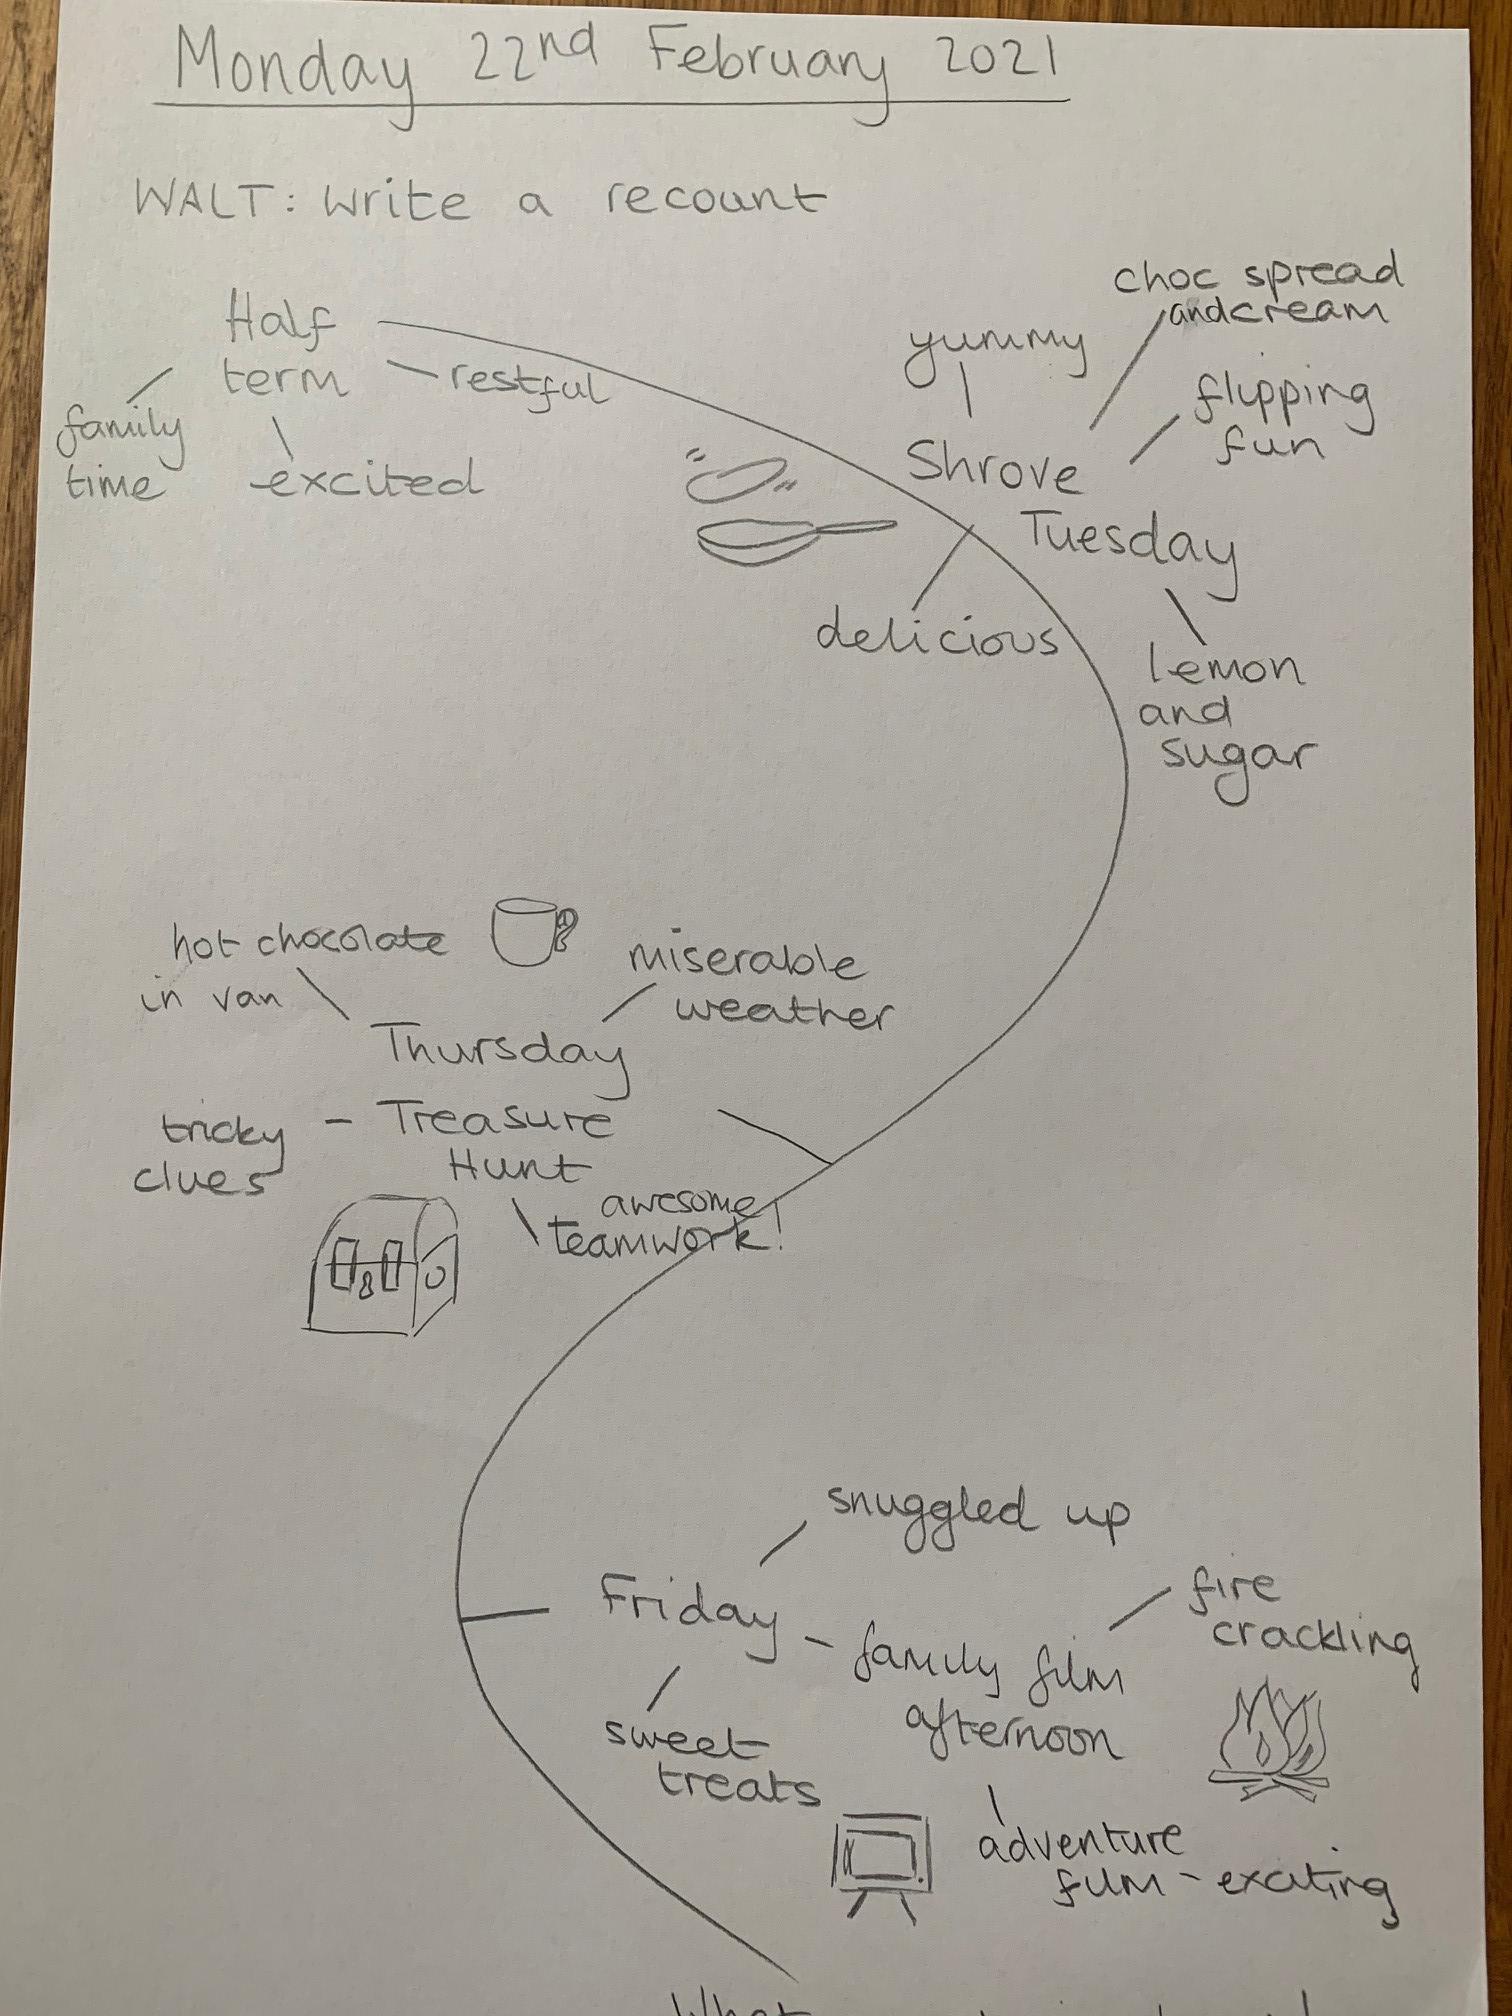 Monday 22nd February 2021
WALT: Write a recount
Half
term
restful
family
time
excited
yummy
choc spread
and cream
flipping
fun
Shrove
Tuesday
delicious
lemon
and
sugar
hot chocolate
in van
miserable
weather
Thursday
Treasure
Hunt
tricky
clues
awesome
teamwork!
snuggled up
Friday
- family film
afternoon
fire
crackling
sweet
treats
adventure
film - exciting
What